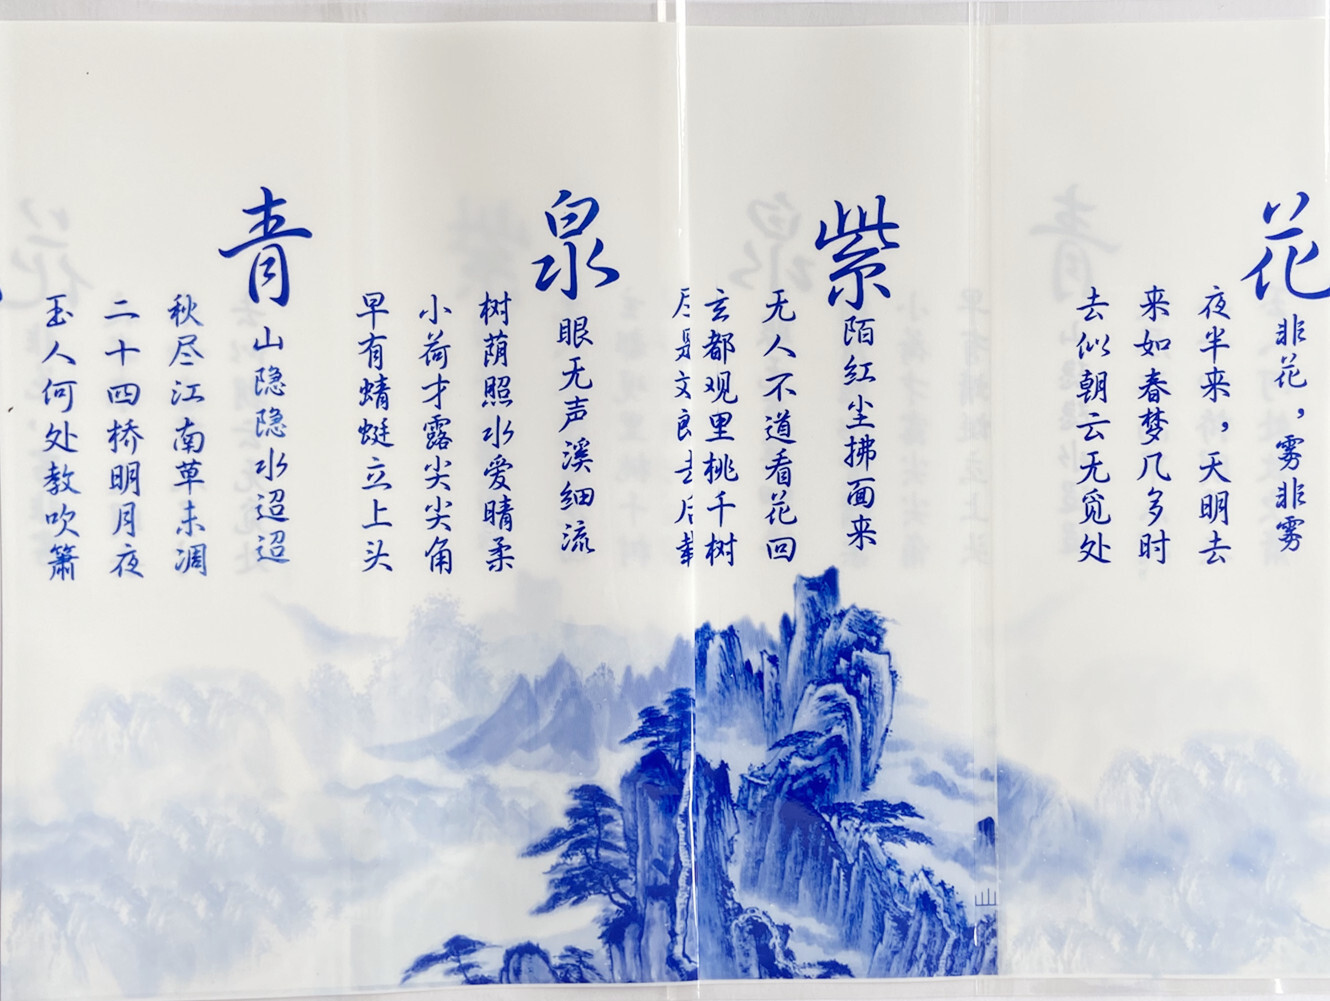 花非花，雾非雾
夜半来，天明去
来如春梦几多时
去似朝云无觅处
紫陌红尘拂面来
无人不道看花回
玄都观里桃千树
尽是刘郎去后栽
泉眼无声溪细流
树荫照水爱晴柔
小荷才露尖尖角
早有蜻蜓立上头
青山隐隐水迢迢
秋尽江南草未凋
二十四桥明月夜
玉人何处教吹箫